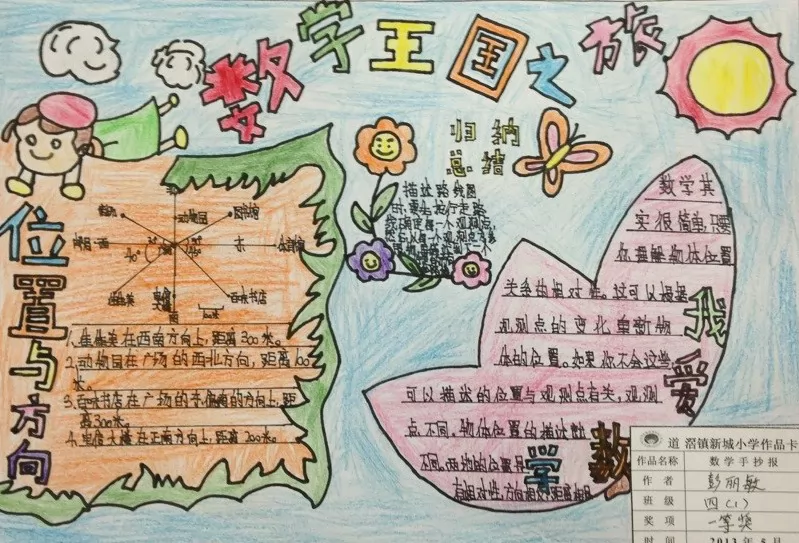 数学王国之旅
位置与方向
归纳
总结
描述路线图
北
动物园
图书馆
东
南
百味书店
1.佳佳美在西南方向上，距离300米。
2.动物园在广场的西北方向，距离100
米。
3.百味书店在广场的东偏南的方向上，距
离300米。
4.电信大楼在正南方向上，距离200米。
数学其
实很简单，只要
你理解物体位置
关系的相对性。这可以根据
观测点的变化重新物
体的位置。如果你不会这些
可以描述的位置与观测点有关，观测
点不同，物体位置的描述就
不同。两地的位置具
有相对性，方向相对，距离相
我爱数学
道滘镇新城小学作品卡
作品名称 数学手抄报
作者 彭丽敏
班级 四（1）
奖项 一等奖
时间 2013年5月